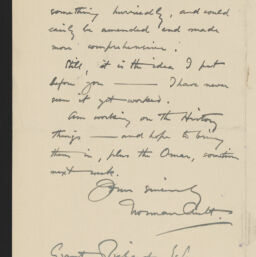 something hurriedly, and could
easily be amended and made
more comprehensive!
Still, it is the idea I put
before you — I have never
seen it yet worked.
Am working on the History
things — and hope to bring
them in, plus the Omar, sometime
next week.
Yours sincerely
Norman Ault.
Grant Richards Esq